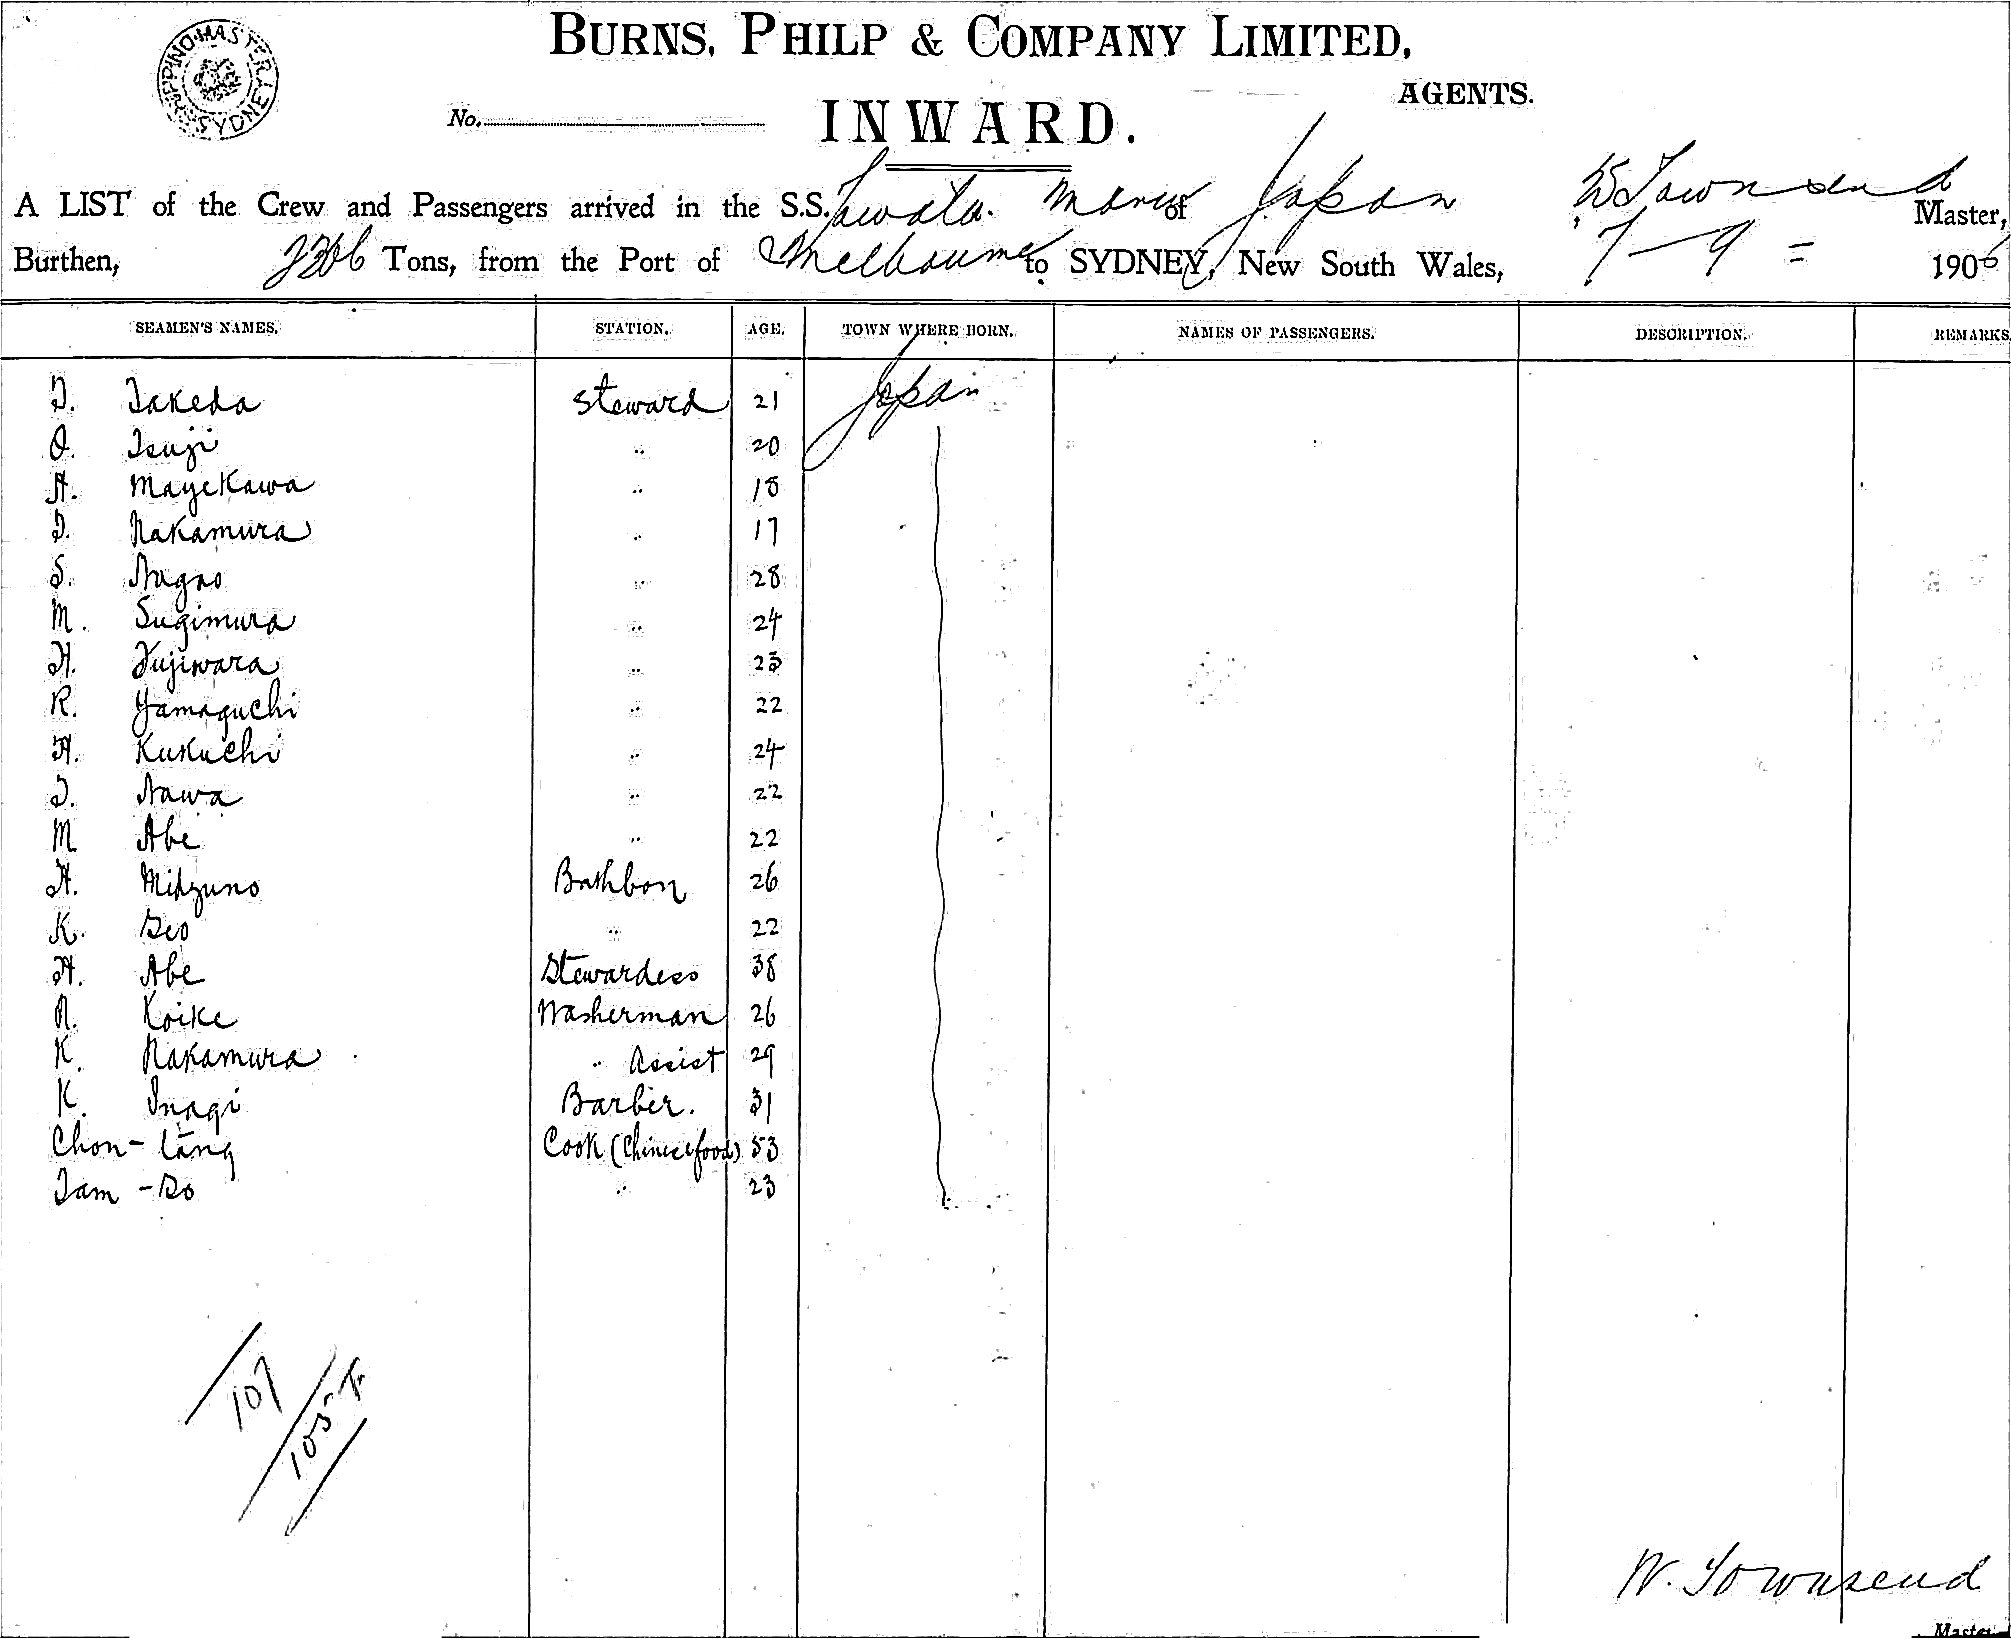 BURNS, PHILP & COMPANY LIMITED,
AGENTS.
SHIPPING MASTER SYDNEY
No.
INWARD.
A LIST of the Crew and Passengers arrived in the S.S. Yawata Maru of Japan W Townsend Master,
Burthen, Tons, from the Port of Melbourne to SYDNEY, New South Wales, 7-9= 1906
SEAMEN'S NAMES. STATION. AGE. TOWN WHERE BORN. NAMES OF PASSENGERS. DESCRIPTION. REMARKS
T. Takeda Steward 21 Japan
O. Tsuji " 20
A. Mayekawa " 18
T. Nakamura " 17
S. Nagao " 28
M. Sugimura " 24
H. Fujiwara " 23
R. Yamaguchi " 22
H. Kukuchi " 24
T. Nawa " 22
M Abe " 22
H. Midzuno Bathboy 26
K. " 22
H. Abe Stewardess 38
N. Koike Washerman 26
K. Nakamura " Assist 29
K. Inagi Barber. 31
Chon- Lang Cook (Chinese food) 53
Tam - So " 23
107
105
W. Townsend
Master